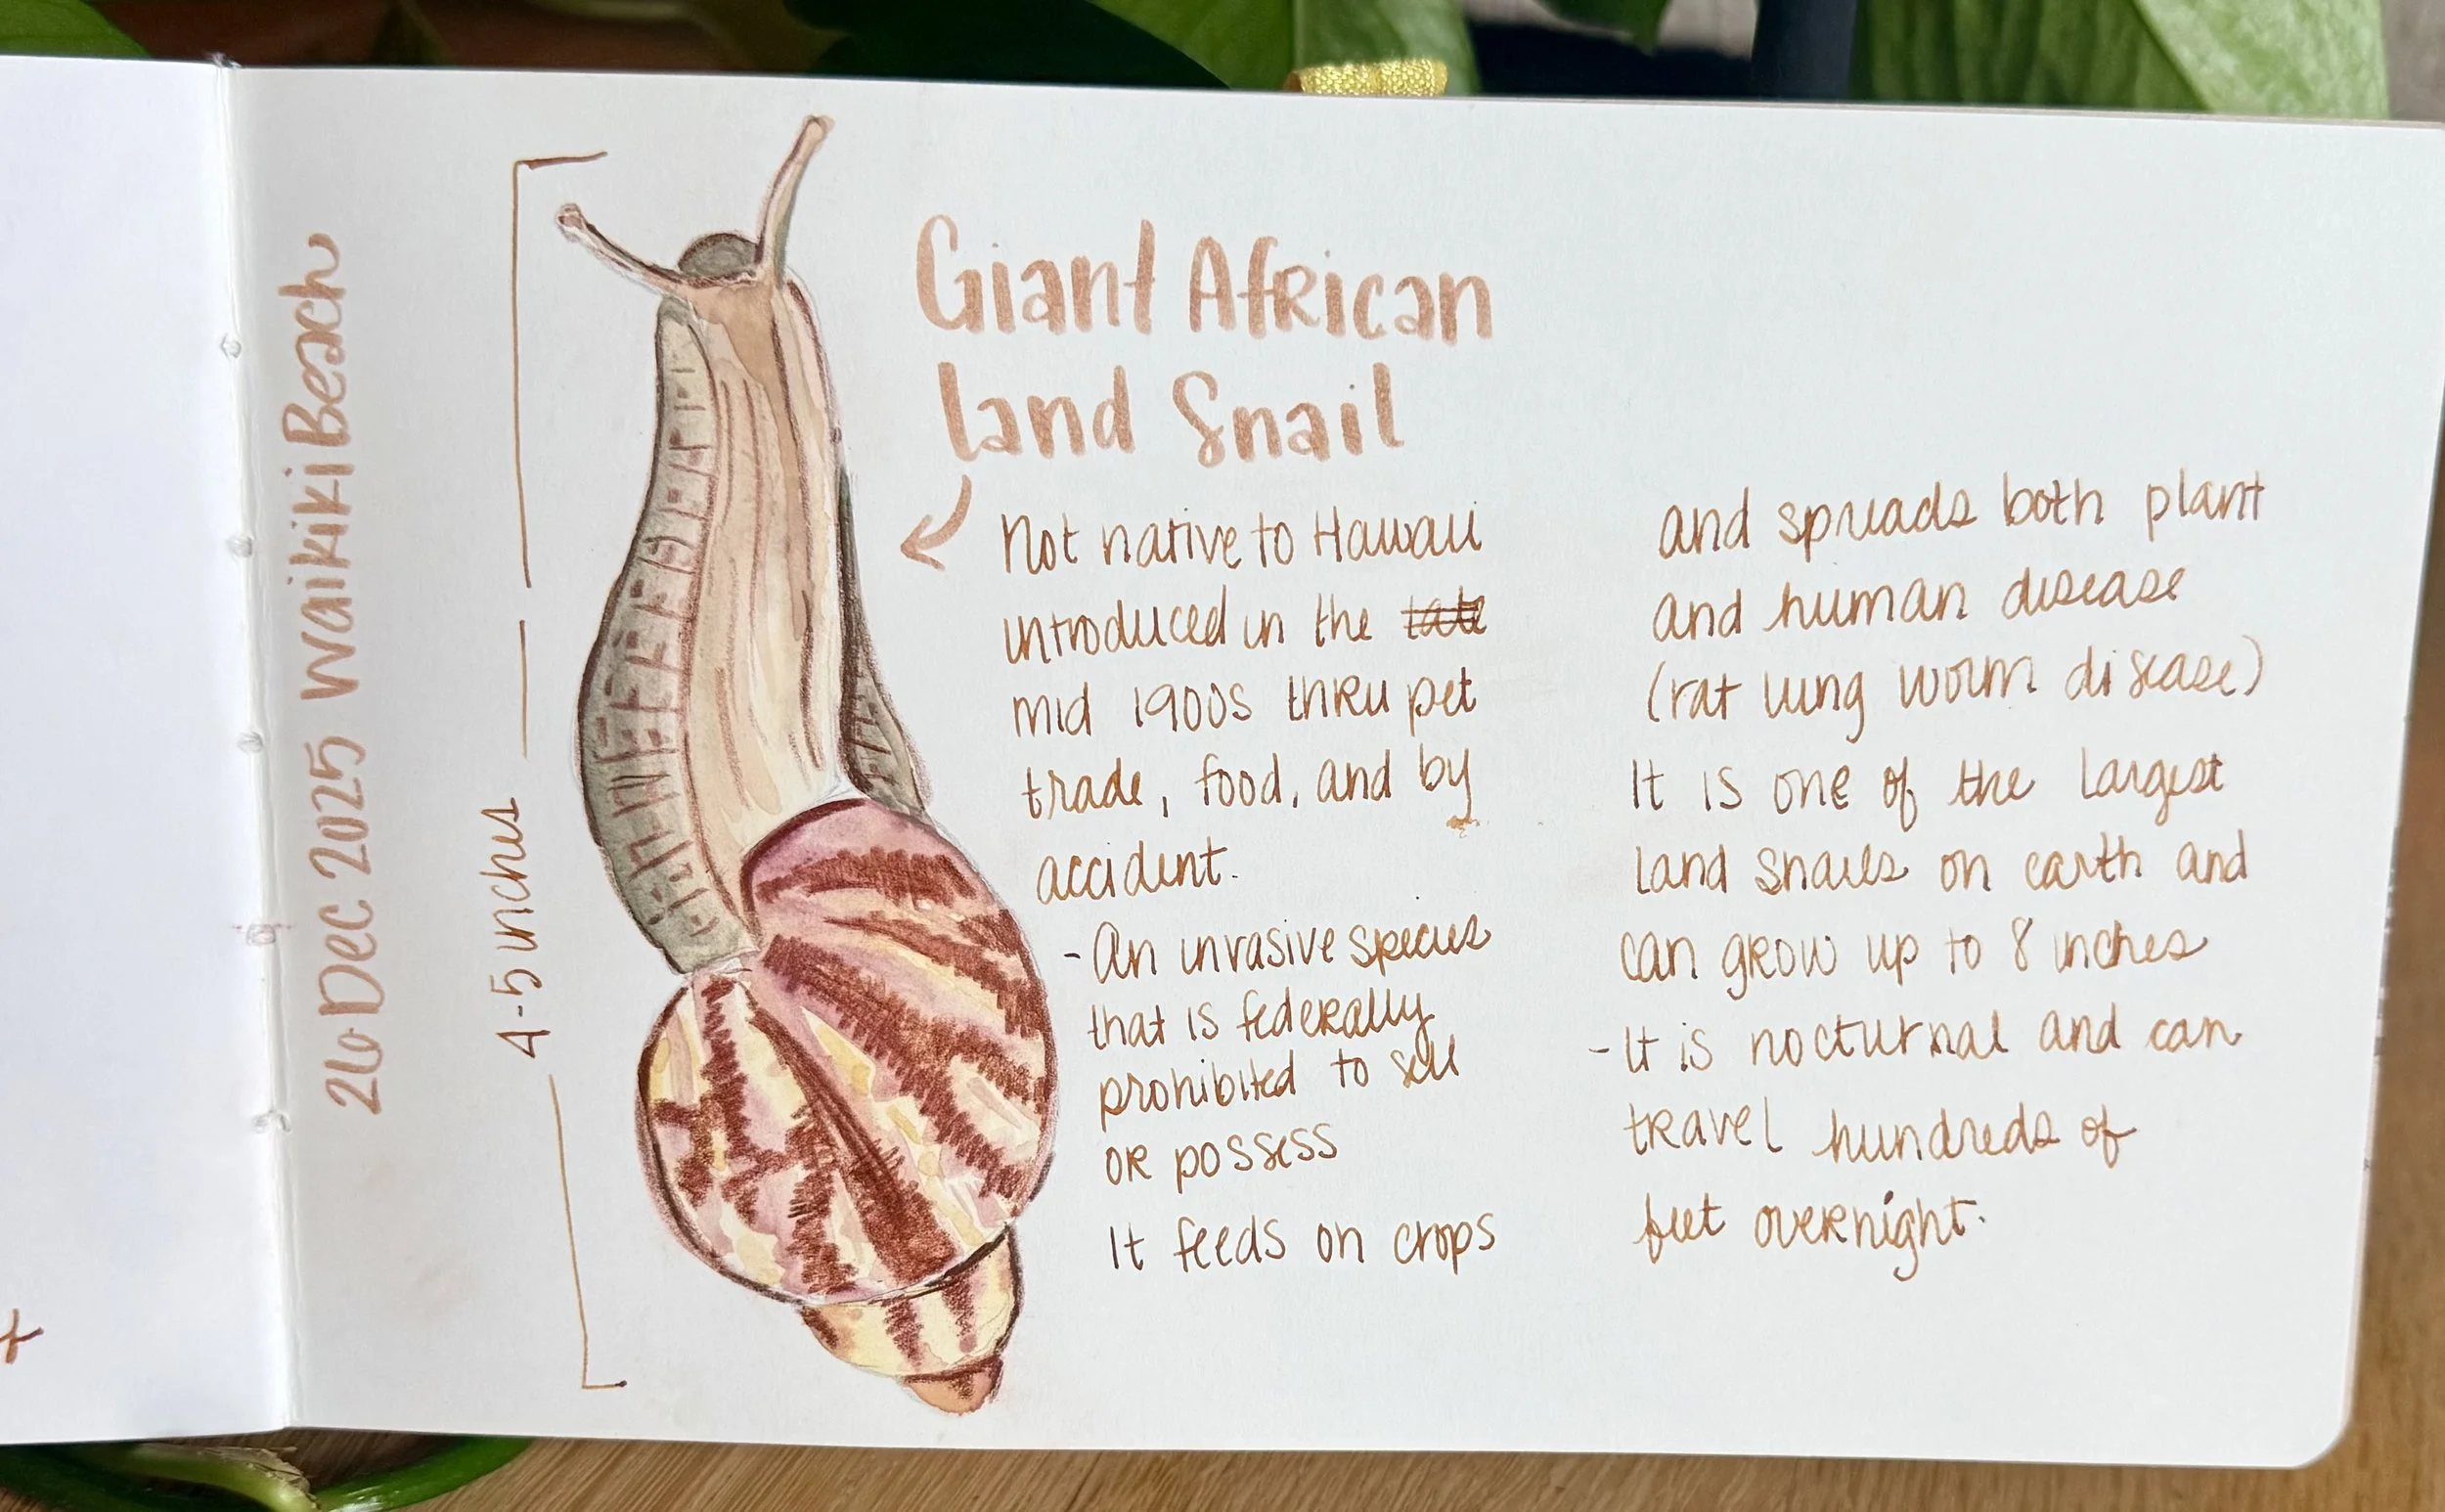 26 Dec 2025 Waikiki Beach
4-5 inches
Giant African
Land Snail
Not native to Hawaii
introduced in the
mid 1900s thru pet
trade, food, and by
accident.
- An invasive species
that is federally
prohibited to sell
or possess
It feeds on crops
and spreads both plant
and human disease
(rat lung worm disease)
It is one of the largest
land snails on earth and
can grow up to 8 inches
- It is nocturnal and can
travel hundreds of
feet overnight.